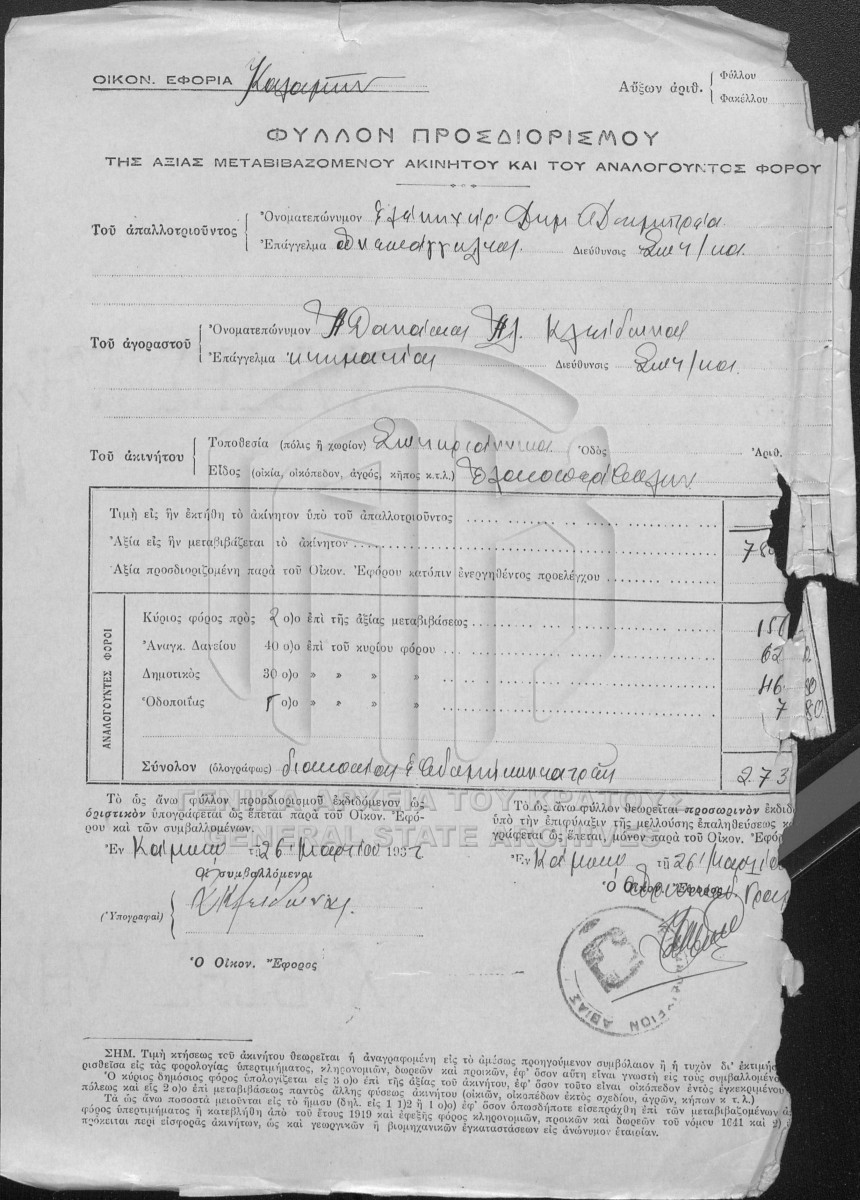 ΟΙΚΟΝ. ΕΦΟΡΙΑ Καλαμών
Αὔξων ἀριθ. Φύλλου
Φακέλλου
ΦΥΛΛΟΝ ΠΡΟΣΔΙΟΡΙΣΜΟΥ
ΤΗΣ ΑΞΙΑΣ ΜΕΤΑΒΙΒΑΖΟΜΕΝΟΥ ΑΚΙΝΗΤΟΥ ΚΑΙ ΤΟΥ ΑΝΑΛΟΓΟΥΝΤΟΣ ΦΟΡΟΥ
Τοῦ ἀπαλλοτριοῦντος
Ὀνοματεπώνυμον
Ἐπάγγελμα Διεύθυνσις
Τοῦ ἀγοραστοῦ
Ὀνοματεπώνυμον Ἀθανάσιος
Ἐπάγγελμα κτηματίας Διεύθυνσις
Τοῦ ἀκινήτου
Τοποθεσία (πόλις ἢ χωρίον) Ὁδὸς Ἀριθ.
Εἶδος (οἰκία, οἰκόπεδον, ἀγρός, κῆπος κ.τ.λ.)
Τιμὴ εἰς ἣν ἐκτήθη τὸ ἀκίνητον ὑπὸ τοῦ ἀπαλλοτριοῦντος
Ἀξία εἰς ἣν μεταβιβάζεται τὸ ἀκίνητον
Ἀξία προσδιοριζομένη παρὰ τοῦ Οἰκον. Ἐφόρου κατόπιν ἐνεργηθέντος προελέγχου
ΑΝΑΛΟΓΟΥΝΤΕΣ ΦΟΡΟΙ
Κύριος φόρος πρὸς 2 ο)ο ἐπὶ τῆς ἀξίας μεταβιβάσεως
Ἀναγκ. Δανείου 40 ο)ο ἐπὶ τοῦ κυρίου φόρου 62
Δημοτικὸς 30 ο)ο » » » » 46 80
Ὁδοποιΐας 5 ο)ο » » » » 7 80
Σύνολον (ὁλογράφως) 273
Τὸ ὡς ἄνω φύλλον προσδιορισμοῦ ἐκδιδόμενον ὡς
ὁριστικὸν ὑπογράφεται ὡς ἕπεται παρὰ τοῦ Οἰκον. Ἐφό-
ρου καὶ τῶν συμβαλλομένων.
Ἐν τῇ 26 Μαρτίου 1937
Οἱ συμβαλλόμενοι
(Ὑπογραφαὶ)
Ὁ Οἰκον. Ἔφορος
Τὸ ὡς ἄνω φύλλον θεωρεῖται προσωρινὸν ἐκδιδ
ὑπὸ τὴν ἐπιφύλαξιν τῆς μελλούσης ἐπαληθεύσεως κ
γράφεται ὡς ἕπεται, μόνον παρὰ τοῦ Οἰκον. Ἐφόρ
Ἐν τῇ 26 Μαρτίου
Ὁ Οἰκον. Ἔφορος
ΑΒΙΑΣ
ΓΕΝΙΚΑ ΑΡΧΕΙΑ ΤΟΥ ΚΡΑΤΟΥΣ
GENERAL STATE ARCHIVES
ΣΗΜ. Τιμὴ κτήσεως τοῦ ἀκινήτου θεωρεῖται ἡ ἀναγραφομένη εἰς τὸ ἀμέσως προηγούμενον συμβόλαιον ἢ ἡ τυχὸν δι' ἐκτιμήσ
ρισθεῖσα εἰς τὰς φορολογίας ὑπερτιμήματος, κληρονομιῶν, δωρεῶν καὶ προικῶν, ἐφ' ὅσον αὕτη εἶναι γνωστὴ εἰς τοὺς συμβαλλομένο
Ὁ κύριος δημόσιος φόρος ὑπολογίζεται εἰς 3 ο)ο ἐπὶ τῆς ἀξίας τοῦ ἀκινήτου, ἐφ' ὅσον τοῦτο εἶναι οἰκόπεδον ἐντὸς ἐγκεκριμένου
πόλεως καὶ εἰς 2 ο)ο ἐπὶ μεταβιβάσεως παντὸς ἄλλης φύσεως ἀκινήτου (οἰκιῶν, οἰκοπέδων ἐκτὸς σχεδίου, ἀγρῶν, κήπων κ τ.λ.)
Τὰ ὡς ἄνω ποσοστὰ μειοῦνται εἰς τὸ ἥμισυ (δηλ. εἰς 1 1)2 ἢ 1 ο)ο) ἐφ' ὅσον ὁπωσδήποτε εἰσεπράχθη ἐπὶ τῶν μεταβιβαζομένων ἀ
φόρος ὑπερτιμήματος ἢ κατεβλήθη ἀπὸ τοῦ ἔτους 1919 καὶ ἐφεξῆς φόρος κληρονομιῶν, προικῶν καὶ δωρεῶν τοῦ νόμου 1641 καὶ 2)
πρόκειται περὶ εἰσφορᾶς ἀκινήτων, ὡς καὶ γεωργικῶν ἢ βιομηχανικῶν ἐγκαταστάσεων εἰς ἀνώνυμον ἑταιρίαν.